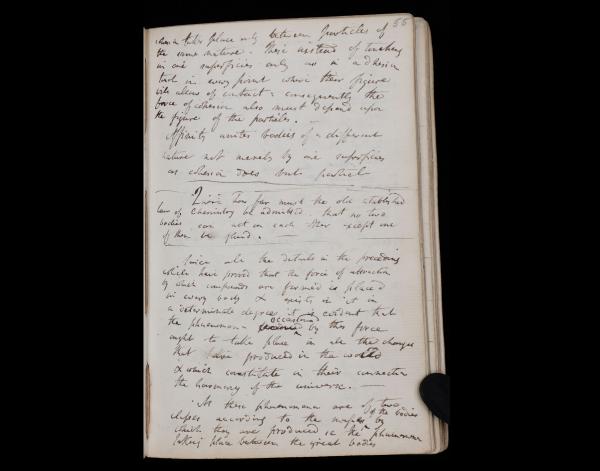 55
which takes place only between particles of
the same nature. These instead of touching
in one superficies only as in adhesion
touch in every point where their figure
will allow of contact: consequently the
force of cohesion also must depend upon
the figure of the particles. —
Affinity unites bodies of a different
nature not merely by one superficies
as cohesion does but particul
how far must the old established
law of Chemistry be admitted. that no two
bodies can act on each other except one
of them be fluid. —
Since all the details in the preceding
which have proved that the force of attraction
by which compounds are formed is placed
in every body & exists in it in
a determinate degree, it is evident that
the phænomena occasioned by this force
ought to take place in all the changes
that have produced in the world
& which constitute in their connection
the harmony of the universe. —
As these phænomena are of two
classes according to the of the bodies
which they are produced ie the phænomena
taking place between the great bodies